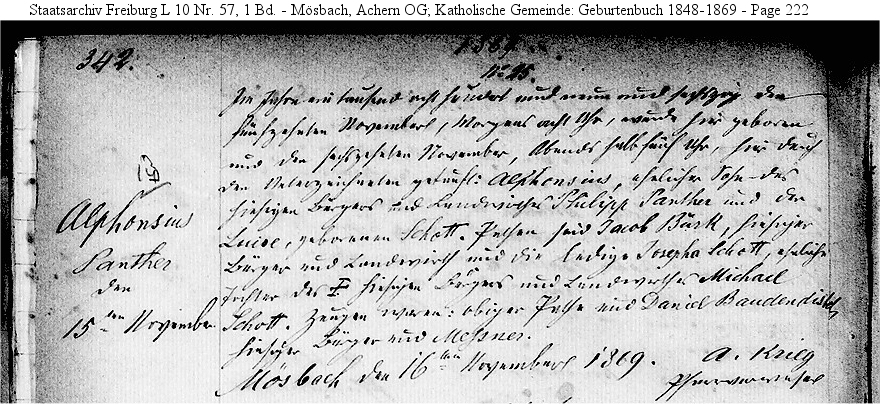 Staatsarchiv Freiburg L 10 Nr. 57, 1 Bd. - Mösbach, Achern OG; Katholische Gemeinde: Geburtenbuch 1848-1869 - Page 222
342.
1869.
No 25.
Im Jahre ein tausend acht hundert und neun und sechszig den
fünfzehnten November, Morgens acht Uhr, wurde hier geboren
und den sechszehnten November, Abends halb fünf Uhr, hier durch
den Unterzeichneten getauft: Alphonsius, ehelicher Sohn des
hiesigen Bürgers und Landwirths Philipp Panther und der
Luise, geborenen Schott. Pathen sind Jacob Bürk, hiesiger
Bürger und Landwirth und die ledige Josepha Schott, eheliche
Tochter des † hiesigen Bürgers und Landwirthes Michael
Schott. Zeugen waren: obiger Pathe und Daniel Baudendistel,
hiesiger Bürger und Messner.
Mösbach den 16ten November 1869. A. Krieg
Pfarrverweser
Alphonsius
Panther
den
15ten November